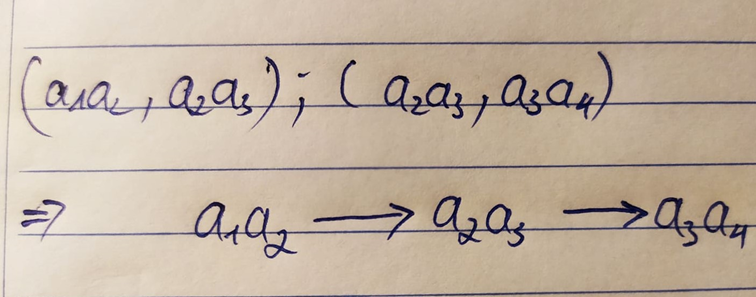 (a₁a₂, a₂a₃); (a₂a₃, a₃a₄)
⇒ a₁a₂ ⟶ a₂a₃ ⟶ a₃a₄